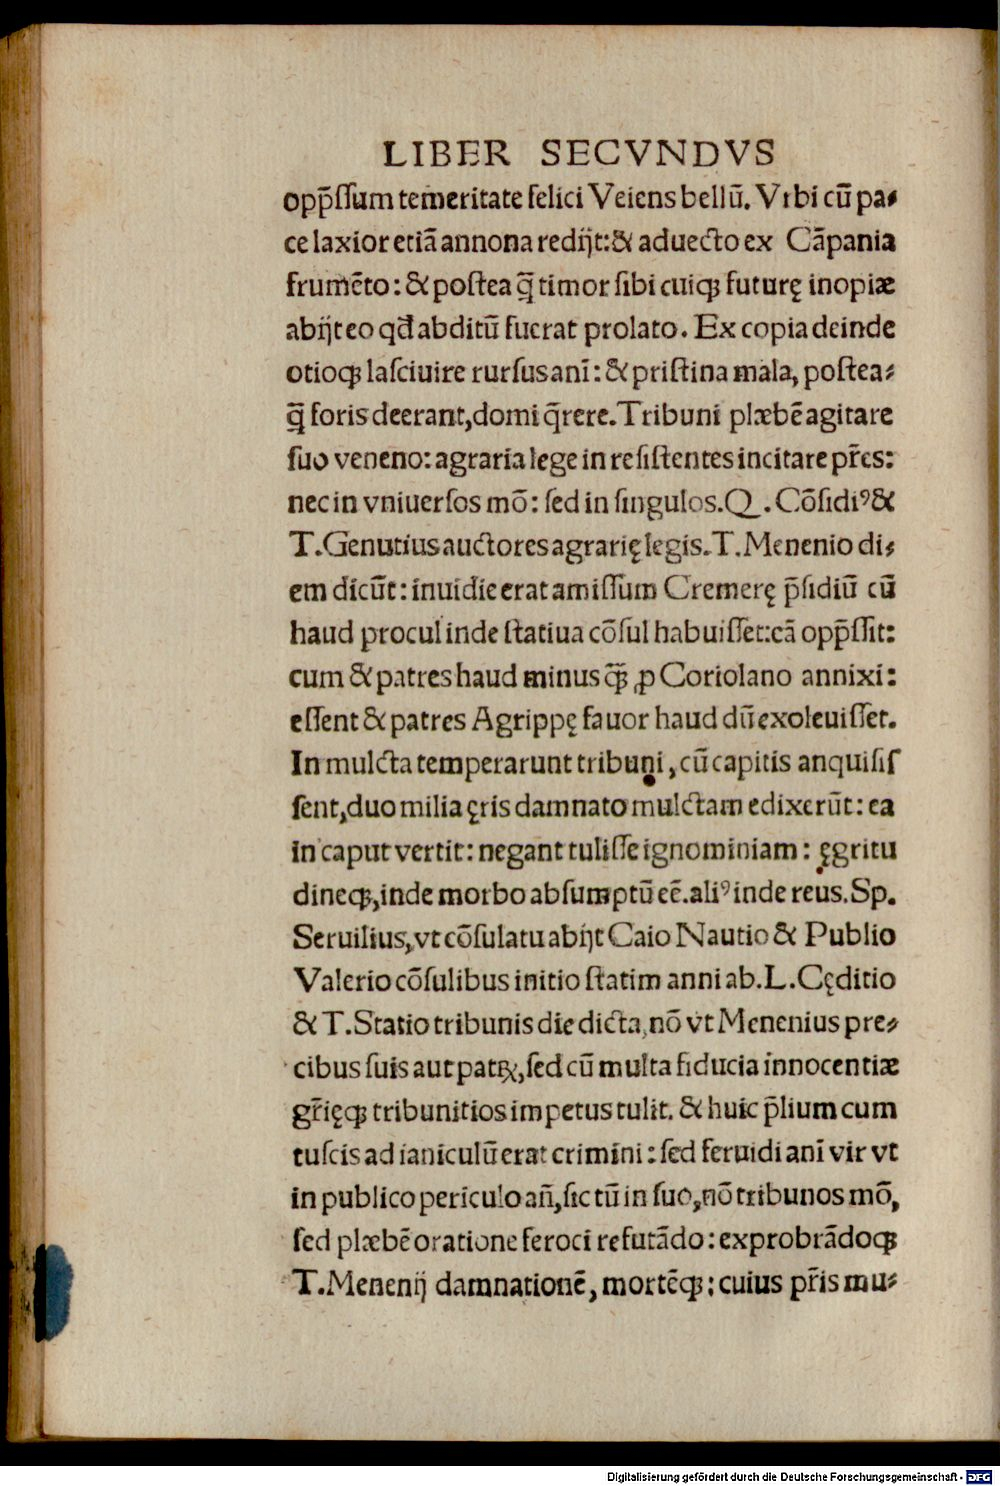 LIBER SECVNDVS
opp̄ſſum temeritate felici Veiens bellū. Vrbi cū pa⸗
ce laxior etiā annona redijt: & aduecto ex Cāpania
frumēto: & poſtea q̄ timor ſibi cuiqꝫ futurę inopiæ
abijt eo qđ abditū fuerat prolato. Ex copia deinde
otioqꝫ laſciuire rurſus anī: & priſtina mala, poſtea⸗
q̄ foris deerant, domi q̄rere. Tribuni plæbē agitare
ſuo veneno: agraria lege in reſiſtentes incitare pr̄es:
nec in vniuerſos mō: ſed in ſingulos. Q. Cōſidiꝰ &
T. Genutius auctores agrarię legis. T. Menenio di⸗
em dicūt: inuidie erat amiſſum Cremerę p̄ſidiū cū
haud procul inde ſtatiua cōſul habuiſſet: eā opp̄ſſit:
cum & patres haud minus qꝫ̄ ꝓ Coriolano annixi:
eſſent & patres Agrippę fauor haud dū exoleuiſſet.
In mulcta temperarunt tribuni, cū capitis anquiſiſ
ſent, duo milia ęris damnato mulctam edixerūt: ea
in caput vertit: negant tuliſſe ignominiam: ęgritu
dineqꝫ, inde morbo abſumptū eē. aliꝰ inde reus. Sp.
Seruilius, vt cōſulatu abijt Caio Nautio & Publio
Valerio cōſulibus initio ſtatim anni ab. L. Cęditio
& T. Statio tribunis die dicta, nō vt Menenius pre⸗
cibus ſuis aut patꝝ, ſed cū multa fiducia innocentiæ
gr̄ięqꝫ tribunitios impetus tulit. & huic p̄lium cum
tuſcis ad ianiculū erat crimini: ſed feruidi anī vir vt
in publico periculo an̄, ſic tū in ſuo, nō tribunos mō,
ſed plæbē oratione feroci refutādo: exprobrādoqꝫ
T. Menenij damnationē, mortēqꝫ: cuius pr̄is mu⸗
Digitalisierung gefördert durch die Deutsche Forschungsgemeinschaft - DFG